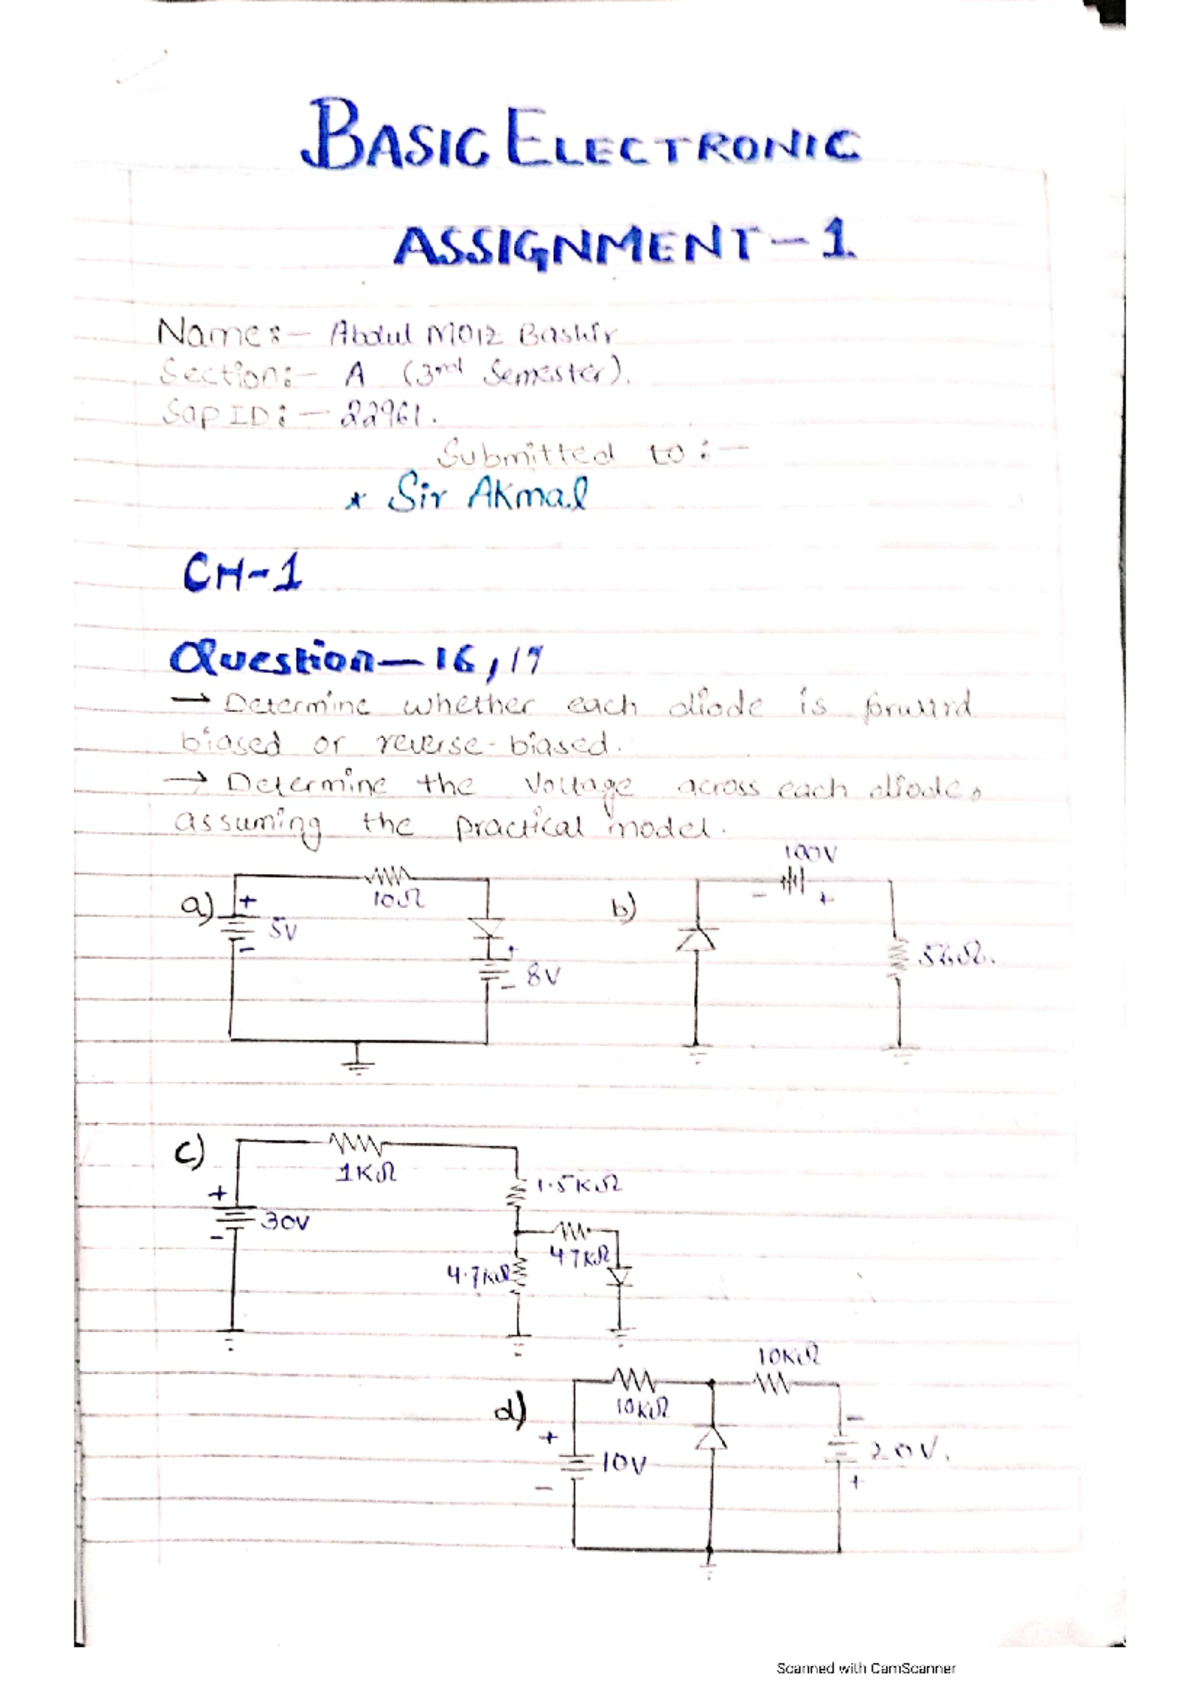 BASIC ELECTRONIC
ASSIGNMENT-1.
Name:- Abdul MOIZ Bashir
Section:- A (3rd Semester).
Sap ID:- 22961.
Submitted to:-
* Sir Akmal
CH-1
Question-16,17
→ Determine whether each diode is forward
biased or reverse-biased.
→ Determine the Voltage across each diode,
assuming the practical model.
a) + 5V - 10Ω + 8V -
b) 100V - + 560Ω.
c) 1KΩ
1.5KΩ
+ 30V -
4.7KΩ
4.7KΩ
10KΩ
d) 10KΩ
+ 10V -
- 20V. +
Scanned with CamScanner